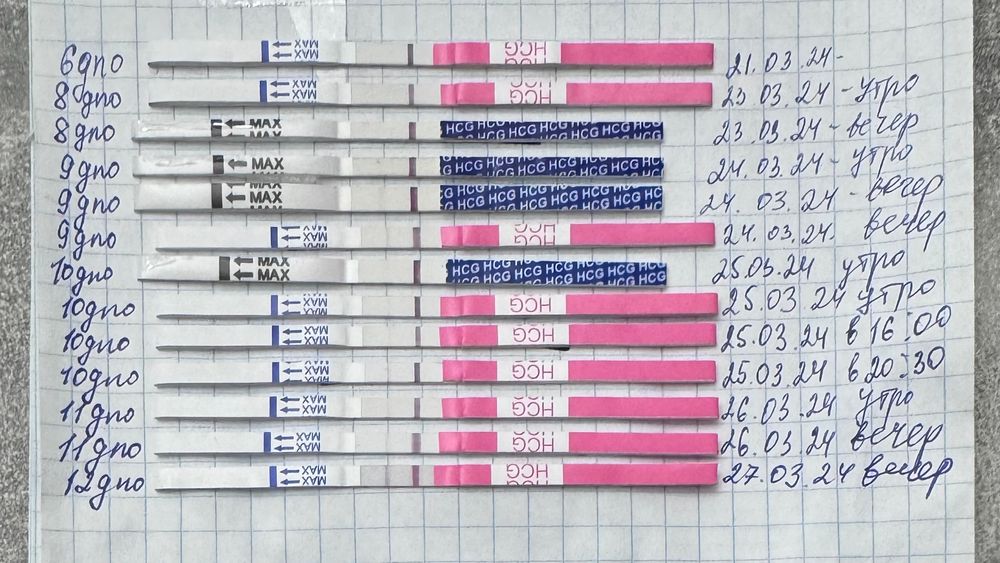 6дпо MAX MAX HCG HCG 21.03.24-
8дпо MAX MAX HCG HCG 23.03.24-утро
8дпо MAX MAX HCG HCG HCG HCG HCG HCG 23.03.24-вечер
9дпо MAX HCG HCG HCG HCG HCG HCG 24.03.24-утро
9дпо MAX MAX MAX HCG HCG HCG HCG HCG HCG 24.03.24-вечер
9дпо MAX MAX HCG HCG 24.03.24. вечер
10дпо MAX MAX HCG HCG HCG HCG HCG HCG 25.03.24 утро
10дпо MAX MAX HCG 25.03.24 утро
10дпо MAX MAX HCG 25.03.24 в 16:00
10дпо MAX MAX HCG 25.03.24 в 20:30
11дпо MAX MAX HCG 26.03.24 утро
11дпо MAX MAX HCG 26.03.24 вечер
12дпо MAX MAX HCG 27.03.24 вечер